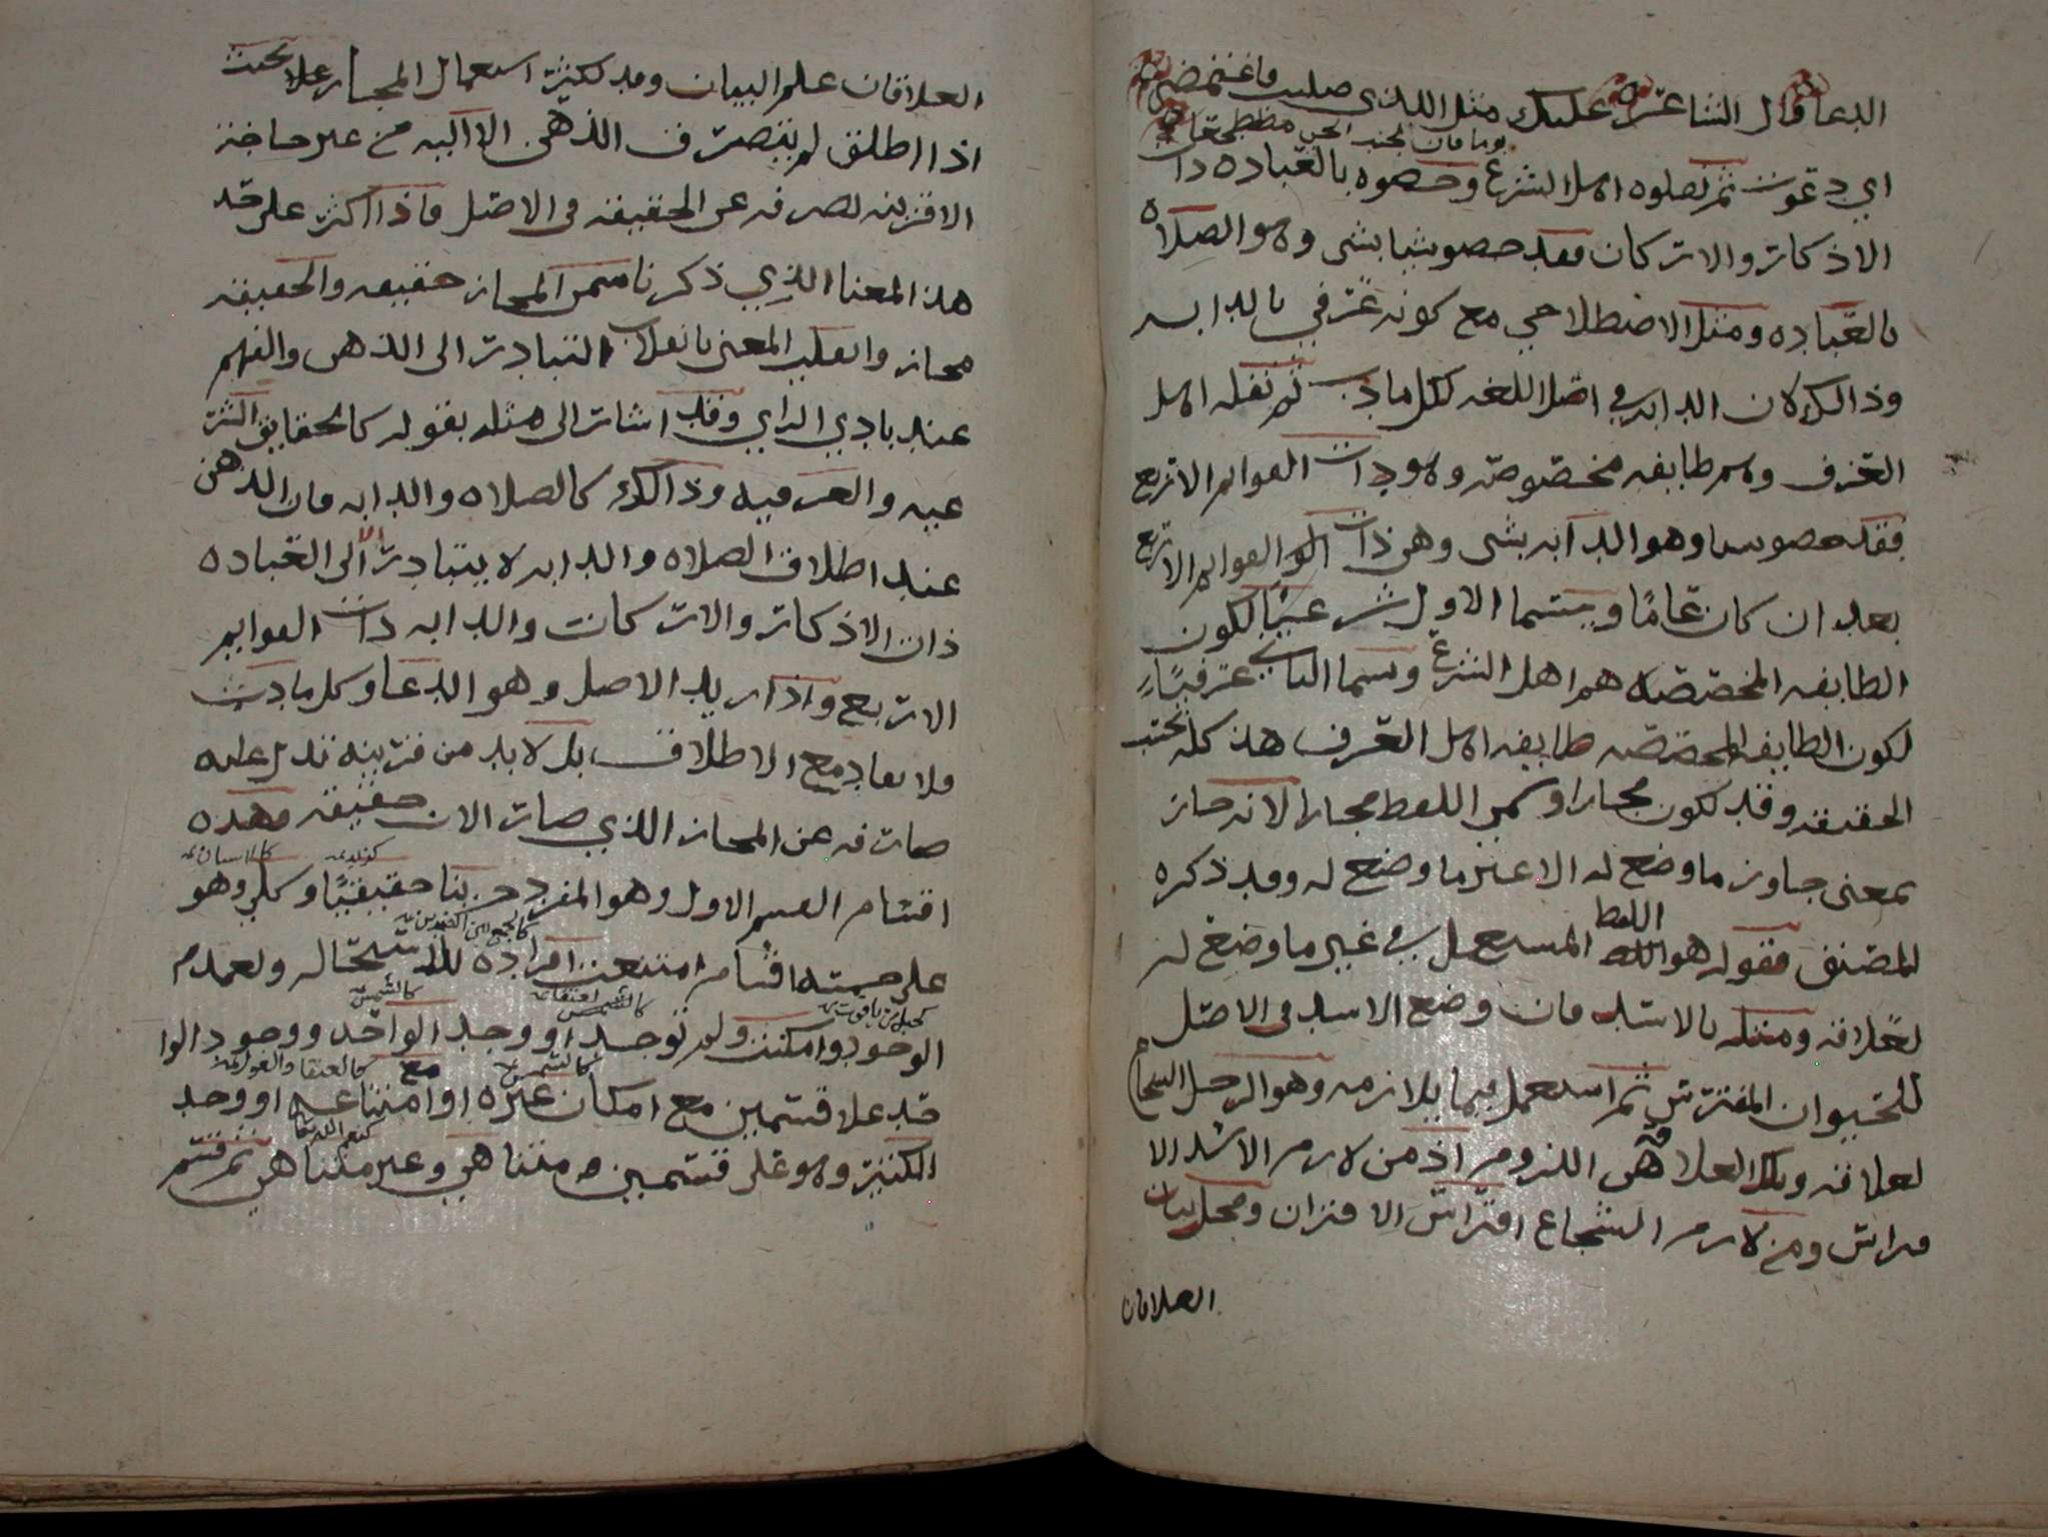 الدعا قال الشاعر عليك مثل الذي صليت فاغتمضي
يوما فان لجنب الحي مضطجعا
اي دعوت ثم نقلوه اهل الشرع وخصوه بالعباده ذات
الاذكار والاركان فقد خصو شيا بشي وهو الصلاه
بالعباده ومثل الاصطلاحي مع كونه عرفي بالدابه
وذالك لان الدابه في اصل اللغه لكل ما دب ثم نقله اهل
العرف وهم طايفه مخصوصه وهو ذات القوايم الاربع
فقد خصوا شيا وهو الدابه بشي وهي ذات القوايم الاربع
بعد ان كان عاما ويسما الاول شرعيا لكون
الطايفه المخصصه هم اهل الشرع ويسما الثاني عرفيا
لكون الطايفه المخصصه طايفه اهل العرف هذ كله بحث
الحقيقه وقد تكون مجازا وسمي اللفظ مجازا لانه جاز
بمعنى جاوز ما وضع له الا غير ما وضع له وقد ذكره
المصنف فقوله هو اللفظ المستعمل في غير ما وضع له
لعلاقه ومثله بالاسد فان وضع الاسد في الاصل
للحيوان المفترس ثم استعمل فيما يلازمه وهو الرجل الشجاع
لعلاقه وتلك العلاقه هي اللزوم اذ من لازم الاسد الا
فراس ومن لازم الشجاع افتراس الاقران ومحل بيان
العلاقات
العلاقات علم البيان وقد تكثر استعمال المجاز علا بحيث
اذا اطلق لم ينصرف الذهن الا اليه من غير حاجه
الا قرينه تصرفه عن الحقيقه في الاصل فاذا كثر على حد
هذ المعنا الذي ذكرنا سمي المجاز حقيقه والحقيقه
مجاز وانقلب المعنى بانقلاب التبادر الى الذهن والفهم
عند بادي الراي وقد اشار الى مثله بقوله كالحقايق الشر
عيه والعرفيه وذالك كالصلاه والدابه فان الذهن
عند اطلاق الصلاه والدابه لا يتبادر الا الى العباده
ذات الاذكار والاركان والدابه ذات القوايم
الاربع واذا اريد الاصل وهو الدعا وكل ما دب
فلا يفاد مع الاطلاق بل لا بد من قرينه تدل عليه
صارفه عن المجاز الذي صار الان حقيقه فهذه
كزيد كالانسان
اقسام القسم الاول وهو المفرد جزييا حقيقيا وكلي وهو
كالجمع بين الضدين
على سته اقسام امتنعت افراده للاستحاله ولعدم
كجبل من ياقوت كالشمس
الوجود وامكنت ولم توجد او وجد الواحد ووجود الوا
كالشمس كالعنقا والغول
حد علا قسمين مع امكان غيره او مع امتناعه او وجد
كنعم الله تعالى
الكثير وهو على قسمين متناهي وغير متناهي ثم قسم